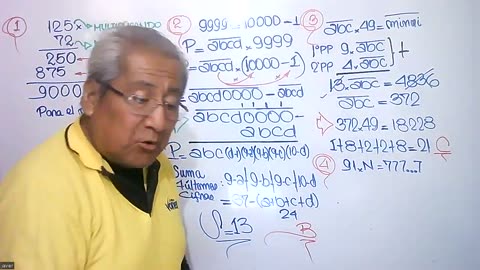 1
125 × MULTIPLICANDO
72
250
875
9000
Para el
2
9999 = 10000 - 1
P = abcd × 9999
abcd × (10000 - 1)
= abcd0000 - abcd
abcd0000 -
abcd
P = abc(d-1)(9-a)(9-b)(9-c)(10-d)
Suma
4 últimas
Cifras
: 9-a/9-b/9-c/10-d
= 37-(a+b+c+d)
24
S = 13
B
3
abc × 49 =
1°PP 9 × abc
2°PP 4 × abc
+
13 × abc = 4836
abc = 372
372 × 49 = 18228
1+8+2+2+8 = 21 C
4
91 × N = 777...7